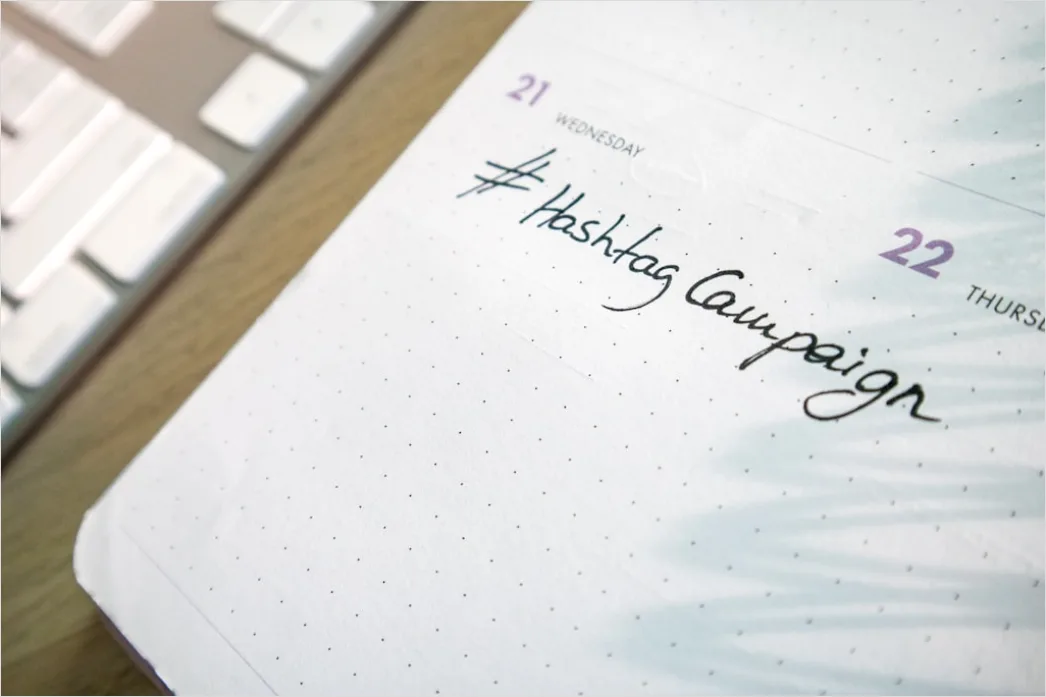 21 WEDNESDAY
# Hashtag Campaign
22